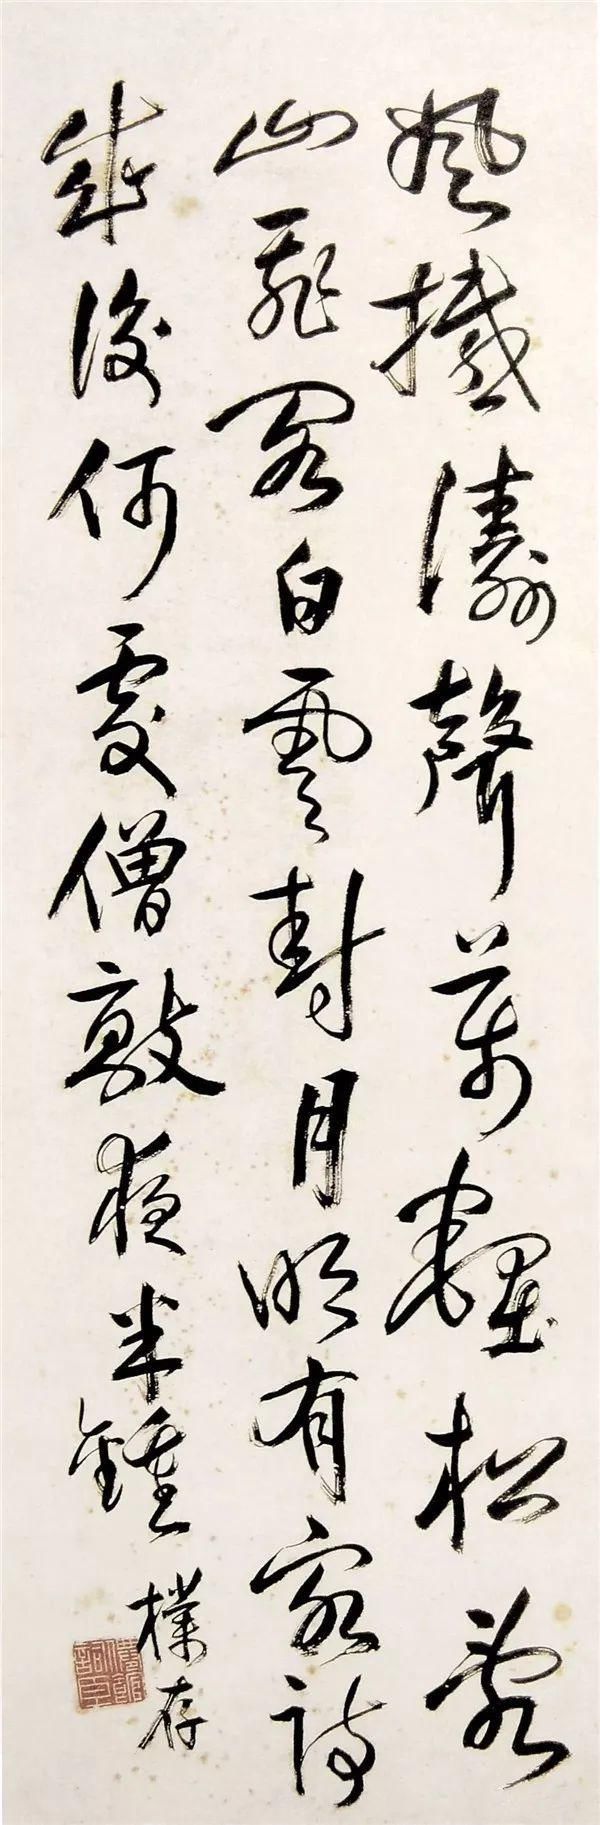 風撼濤聲萬壑松亂
山飛閣白雲封月明有客詩
成後何處僧敲夜半鍾
樸存